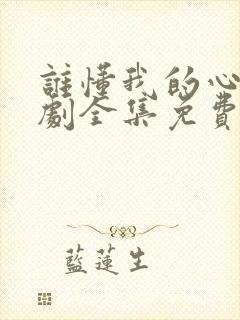 誰懂我的心
劇全集免費
藍蓮生